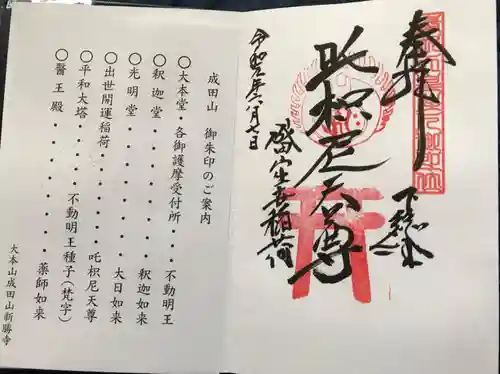 奉拝
吒枳尼天尊
令和元年八月七日
成田山 御朱印のご案内
〇大本堂・各御護摩受付所・・不動明王
〇釈迦堂・・・・・・・・釈迦如来
〇光明堂・・・・・・・・大日如来
〇出世開運稲荷・・・・・吒枳尼天尊
〇平和大塔・・・不動明王種子(梵字)
〇醫王殿・・・・・・・・薬師如来
大本山成田山新勝寺